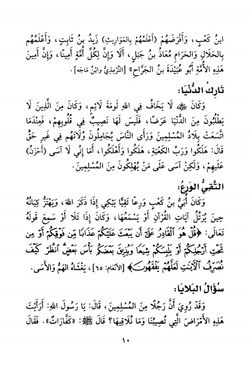 ابْنُ كَعْبٍ، وَأَفْرَضُهُمْ (أَعْلَمُهُمْ بِالمَوَارِيثِ) زَيدُ بْنُ ثَابِتٍ، وَأَعْلَمُهُمْ
بِالْحَلَالِ وَالحَرَامِ مُعَاذُ بْنُ جَبَلٍ، أَلَا وَإِنَّ لِكُلِّ أُمَّةٍ أَمِينًا، وَإِنَّ أَمِينَ
هَذِهِ الأُمَّةِ أَبُو عُبَيْدَةَ بْنُ الجَرَّاحِ» [التِّرْمِذِيُّ وابْنُ مَاجَه].
تَارِكُ الدُّنْيَا:
وَكَانَ ﷺ لَا يَخَافُ فِي اللهِ لَوْمَةَ لَائِمٍ، وَكَانَ مِنَ الَّذِينَ لَا
يَطْلُبُونَ مِنَ الدُّنْيَا عَرَضًا، فَلَيْسَ لَهَا نَصِيبٌ فِي قُلُوبِهِمْ، فَعِنْدَمَا
اتَّسَعَتْ بِلَادُ المُسْلِمِينَ وَرَأَى النَّاسَ يُجَامِلُونَ وُلَاتَهُمْ فِي غَيْرِ حَقٍّ
قَالَ: هَلَكُوا وَرَبِّ الكَعْبَةِ، هَلَكُوا، وَأَهْلَكُوا، أَمَا إِنِّي لَا آسَى (أَحْزَنُ)
عَلَيْهِمْ، وَلَكِنْ آسَى عَلَى مَنْ يُهْلِكُونَ مِنَ المُسْلِمِينَ.
التَّقِيُّ الوَرِعُ:
وَكَانَ أُبَيُّ بنُ كَعْبٍ وَرِعًا تَقِيًّا يَبْكِي إِذَا ذَكَرَ اللهَ، وَيَهْتَزُّ كِيَانُهُ
حِينَ يُرَتِّلُ آيَاتِ القُرْآنِ أَوْ يَسْمَعُهَا، وَكَانَ إِذَا تَلَا أَوْ سَمِعَ قَوْلَهُ
تَعَالَى: ﴿قُلْ هُوَ الْقَادِرُ عَلَى أَن يَبْعَثَ عَلَيْكُمْ عَذَابًا مِّن فَوْقِكُمْ أَوْ مِن
تَحْتِ أَرْجُلِكُمْ أَوْ يَلْبِسَكُمْ شِيَعًا وَيُذِيقَ بَعْضَكُم بَأْسَ بَعْضٍ انظُرْ كَيْفَ
نُصَرِّفُ الْآيَاتِ لَعَلَّهُمْ يَفْقَهُونَ﴾ [الأنعام: ٦٥]، يَغْشَاهُ الهَمُّ وَالأَسَى.
سُؤَالُ البَلَايَا:
وَقَدْ رُوِيَ أَنَّ رَجُلًا مِنَ المُسْلِمِينَ، قَالَ: يَا رَسُولَ اللهِ، أَرَأَيْتَ
هَذِهِ الأَمْرَاضَ الَّتِي تُصِيبُنَا وَمَا نُلَاقِيهَا؟ قَالَ ﷺ: «كَفَّارَاتٌ». فَقَالَ
١٠